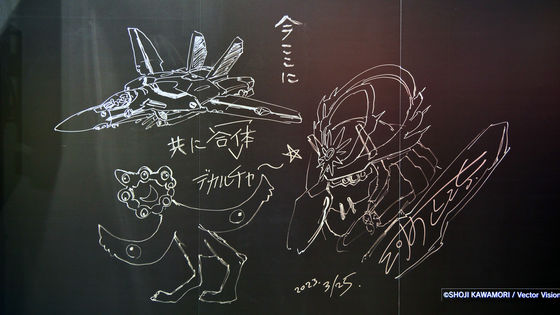 今ここに
共に合体
デカルチャ～☆
2023. 3/25.
©SHOJI KAWAMORI / Vector Vision